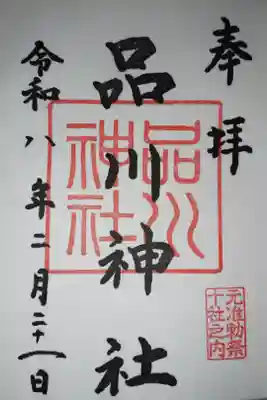 奉拝
品川神社
品川神社
元准勅祭
十社之内
令和八年二月二十一日